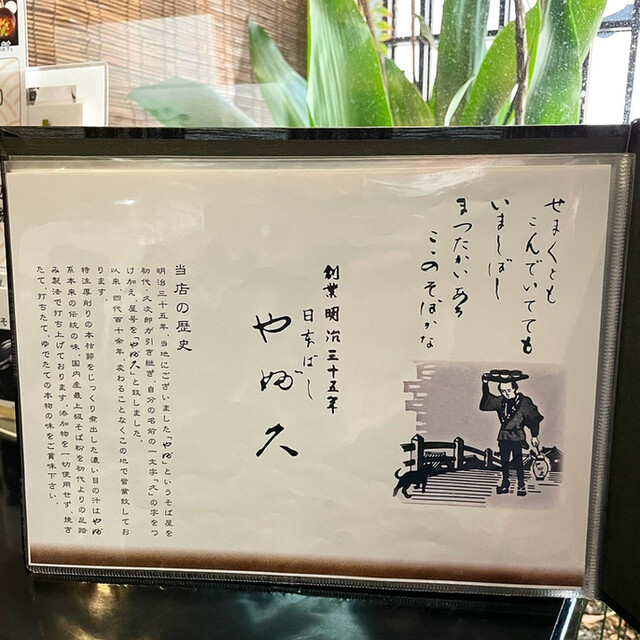 せまくとも
こんでいてても
いましばし
まつたかいあり
このそばかな
創業明治三十五年
日本ばし
やぶ久
当店の歴史
明治三十五年、当地にございました「やぶ」というそば屋を
初代・久次郎が引き継ぎ、自分の名前の一文字「久」の字をつ
け加え、屋号を「やぶ久」と致しました。
以来、四代百十余年、変わることなくこの地で営業致してお
ります。
特注厚削りの本枯節をじっくり煮出した濃い目の汁はやぶ
系本来の伝統の味、国内産最上級そば粉を初代よりの足踏
み製法で打ち上げております。添加物を一切使用せず、挽き
たて、打ちたて、ゆでたての本物の味をご賞味下さい。